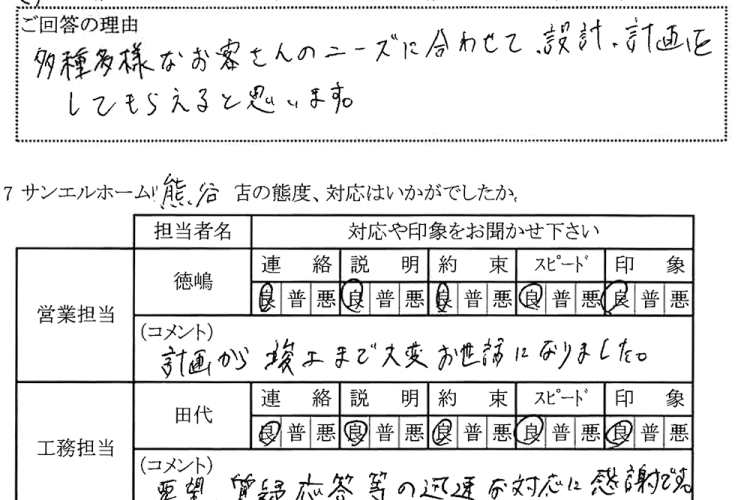 ご回答の理由
多種多様なお客さんのニーズに合わせて、設計、計画を
してもらえると思います。
7 サンエルホーム 熊谷 店の態度、対応はいかがでしたか。
担当者名 対応や印象をお聞かせ下さい
営業担当 徳嶋 連絡 説明 約束 スピード 印象
良 普 悪 良 普 悪 良 普 悪 良 普 悪 良 普 悪
(コメント)
計画から竣工まで大変お世話になりました。
工務担当 田代 連絡 説明 約束 スピード 印象
良 普 悪 良 普 悪 良 普 悪 良 普 悪 良 普 悪
(コメント)
要望、質疑応答等の迅速な対応に感謝です。